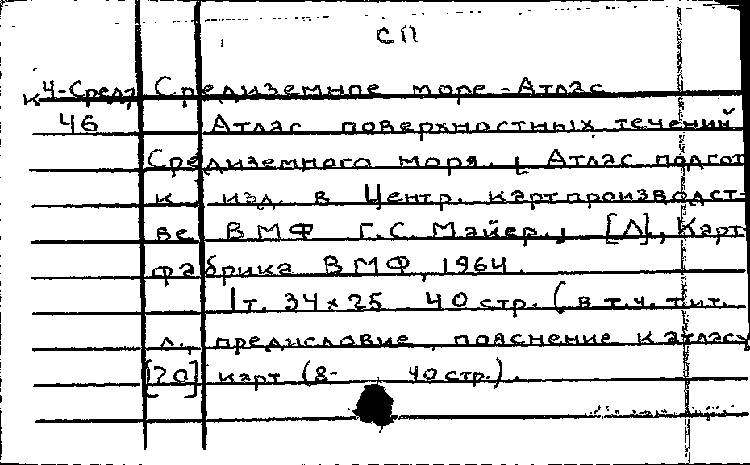 СП
к 4-Сред Средиземное море - Атлас
46 Атлас поверхностных течений
Средиземного моря., Атлас подгот
к изд. в Центр. картпроизводст-
ве ВМФ Г.С. Майер., [Л]., Карт-
фабрика ВМФ, 1964.
1т. 34×25 40 стр. (в т.ч. тит.
л., предисловие, пояснение к атласу
[20] карт (8- 40 стр.).